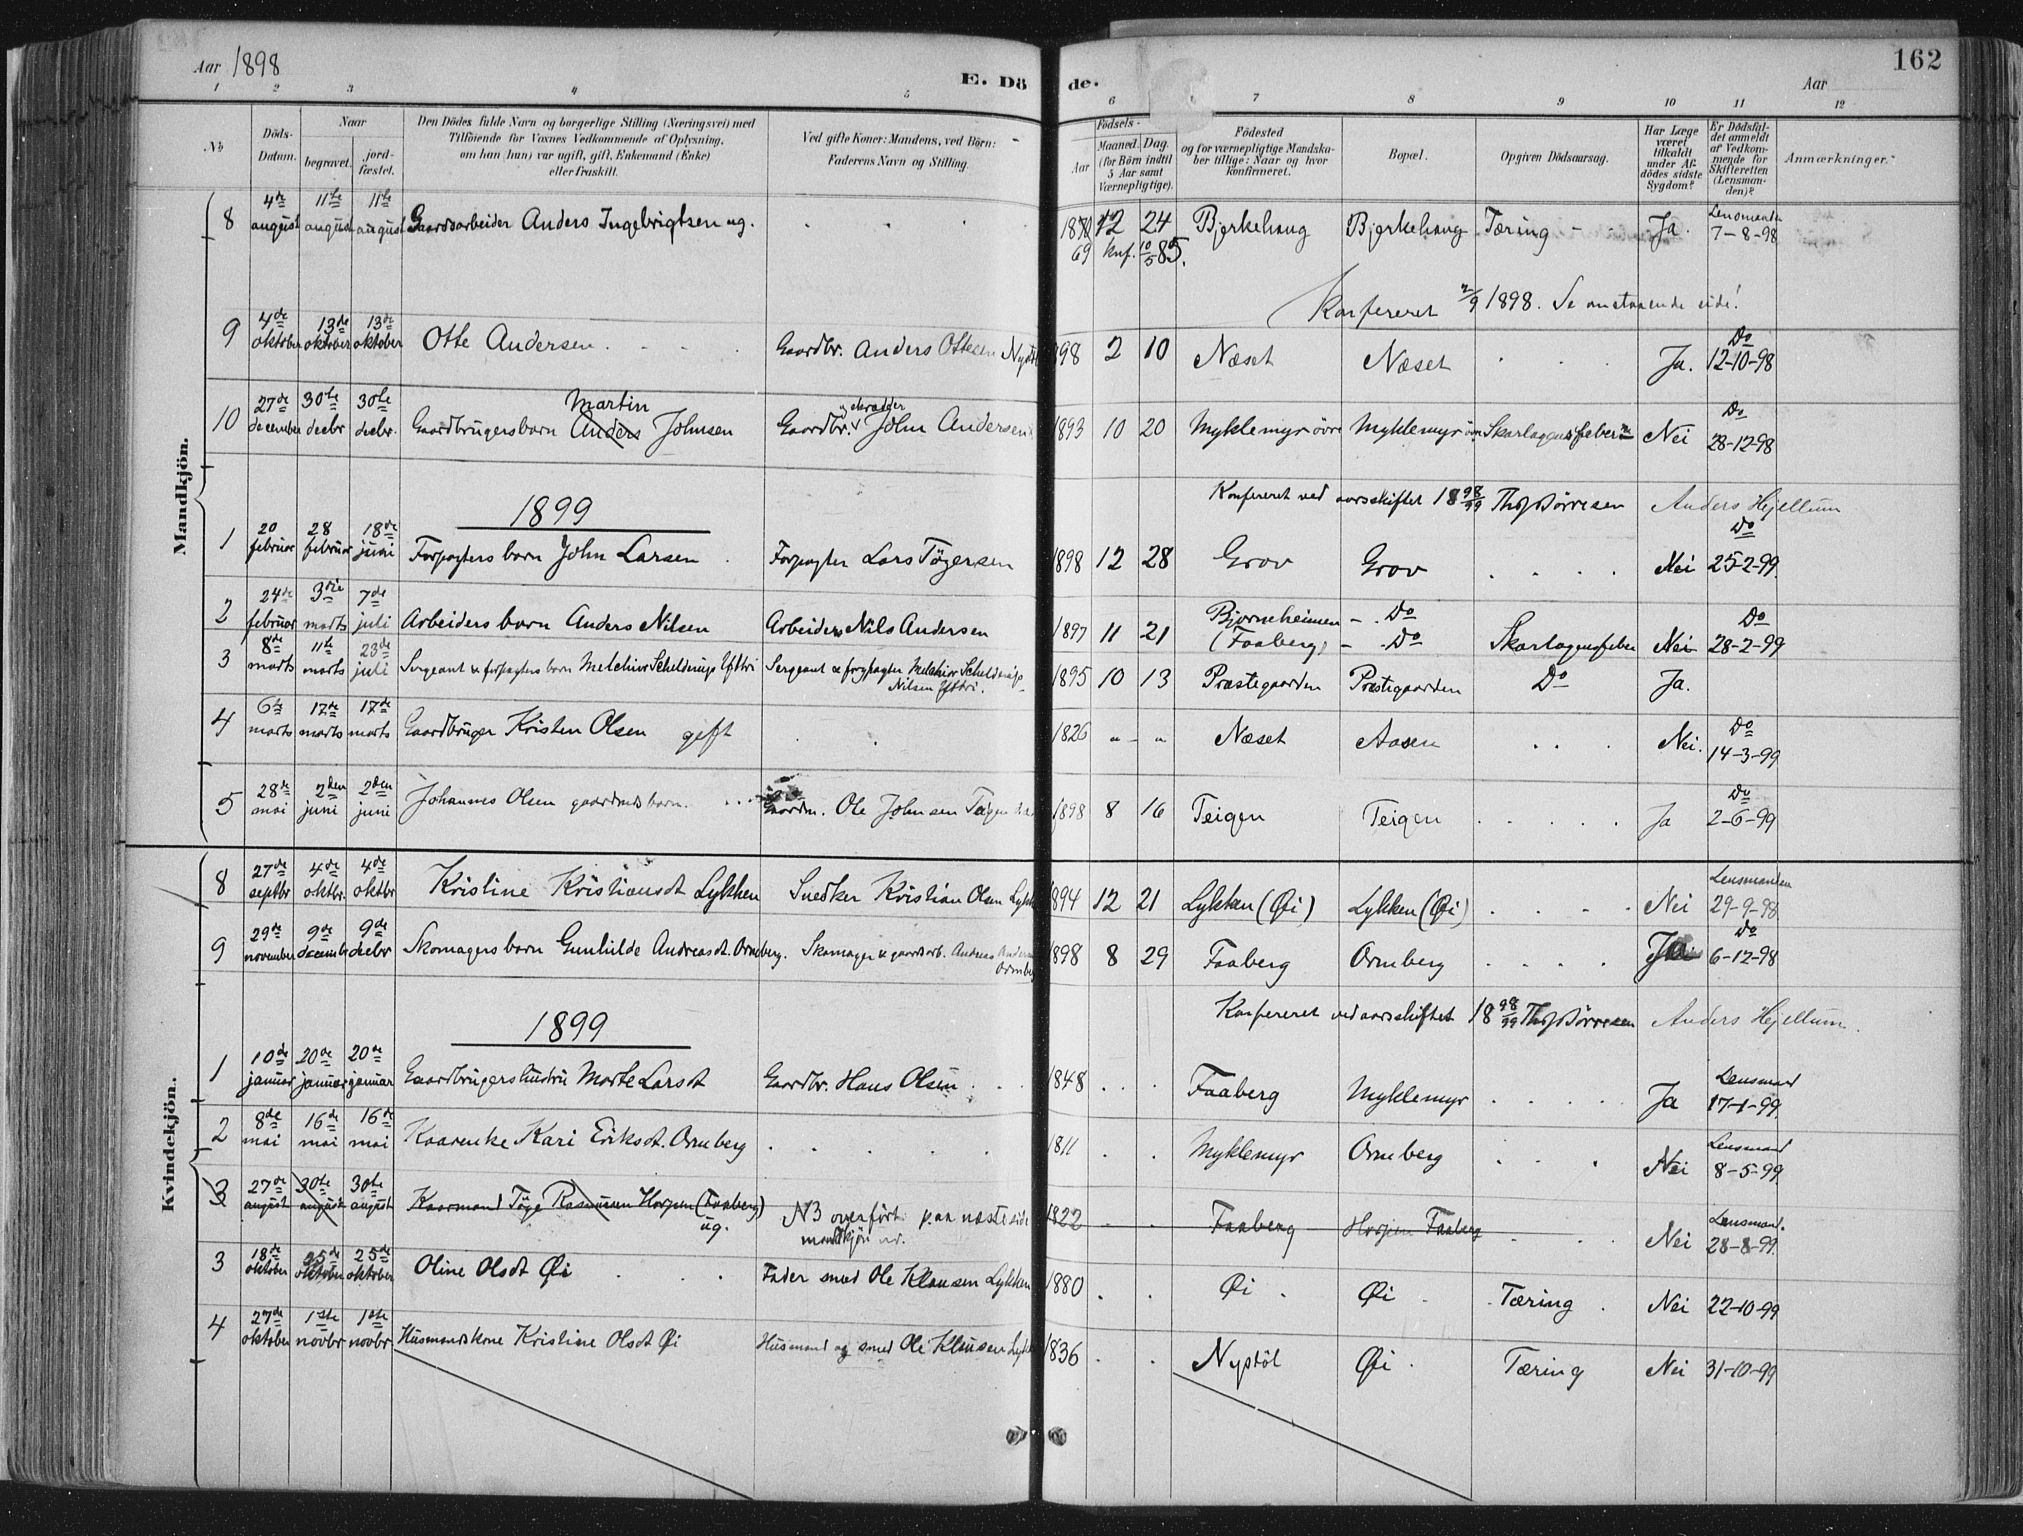 Aar 1898
E. Döde.
Aar
162
1 2 3 4 5 6 7 8 9 10 11 12
No
Döds-Datum.
Naar
begravet.
jord-fæstet.
Den Dödes fulde Navn og borgerlige Stilling (Næringsvei) med
Tilföiende for Voxnes Vedkommende af Oplysning,
om han (hun) var ugift, gift, Enkemand (Enke)
eller fraskilt.
Ved gifte Koner: Mandens, ved Börn:
Faderens Navn og Stilling.
Födsels-
Aar
Maaned. Dag.
(for Börn indtil 5 Aar samt Værnepligtige).
Födested
og for værnepligtige Mandska-
ber tillige: Naar og hvor
konfirmeret.
Bopæl.
Opgiven Dödsaarsag.
Har Læge været tilkaldt under Af-dödes sidste Sygdom?
Er Dödsfal-det anmeldt af Vedkom-mende for Skifteretten (Lensman-den)?
Anmærkninger.
Mandkjön.
8 4de august 11te august 11te august Gaardsarbeider Anders Ingebrigtsen ug. 12 24 Bjerkehaug Bjerkehaug Tæring Ja. Lensmanden 7-8-98
69 knf. 10/5 85.
Konfereret 2/9 1898. Se omstaaende side!
9 4de oktober 13de oktober 13de oktober Otte Andersen Gaardbr. Anders Ottesen 1898 2 10 Næset Næset Ja. Do 12-10-98
10 27de december 30te decbr 30te decbr. Gaardbrugersbarn Anders Martin Johnsen Gaardbr. og skrædder John Andersen 1893 10 20 Myklemyr övre Myklemyr Skarlagensfeber Nei Do 28-12-98
Konfereret ved aarsskiftet 1898/99 Th Börresen Anders Hjellum
1899
1 20 februar 28 februar 18de juni Forpagters barn John Larsen Forpagter Lars Tögersen 1898 12 28 Grov Grov Nei Do 25-2-99
2 24de februar 3die marts 7de juli Arbeiders barn Anders Nilsen Arbeider Nils Andersen 1897 11 21 Bjørneheimen (Faaberg) Do Do Skarlagensfeber Nei Do 28-2-99
3 8de marts 11te marts 23de juli Sergeant & forpagters barn Melchior Schelderup Sergeant & forpagter Melchior Schelderup Nilsen 1895 10 13 Præstegaarden Præstegaarden Do Ja.
4 6te marts 17de marts 17de marts Gaardbruger Kristen Olsen gift 1826 " - " Næset Aasen Nei. Do 14-3-99
5 28de mai 2den juni 2den juni Johannes Olsen gaardmds barn. Gaardm. Ole Johnsen Teigen 1898 8 16 Teigen Teigen Ja Do 2-6-99
Kvindekjön.
8 27de septbr 4de oktbr. 4de oktbr Kristine Kristiansdt Lykken Snedker Kristian Olsen 1894 12 21 Lykken (Øi) Lykken (Øi) Nei Lensmanden 29-9-98
9 29de november 9de decembr 9de decbr Skomagers barn Gunhilde Andreasdt. Ormberg. Skomager & gaardarb. Andreas Ormberg 1898 8 29 Faaberg Ormberg Ja Do 6-12-98
Konfereret ved aarsskiftet 1898/99 Th Börresen Anders Hjellum.
1899
1 10de januar 20de januar 20de januar Gaardbrugershustru Marte Larsdt Gaardbr. Hans Olsen 1848 Faaberg Myklemyr Ja Lensmand 17-1-99
2 8de mai 16de mai 16de mai Kaarenke Kari Eriksdt. Ormberg 1811 Myklemyr Ormberg Nei Lensmand 8-5-99
3 27de august 30te august 30te august Kaarmand Töge Rasmusen Horpen (Faaberg) ug. N3 overfört paa næste side mandkjön 1822 Faaberg Horpen Faaberg Nei Lensmand. 28-8-99
3 18de oktober 25de oktober 25de oktober Oline Olsdt Øi Fader smed Ole Klausen Lykken 1880 Øi Øi Tæring Nei 22-10-99
4 27de oktober 1ste novbr 1ste novbr Husmandskone Kristine Olsdt Øi Husmand og smed Ole Klausen 1836 Nystöl Øi Tæring Nei 31-10-99